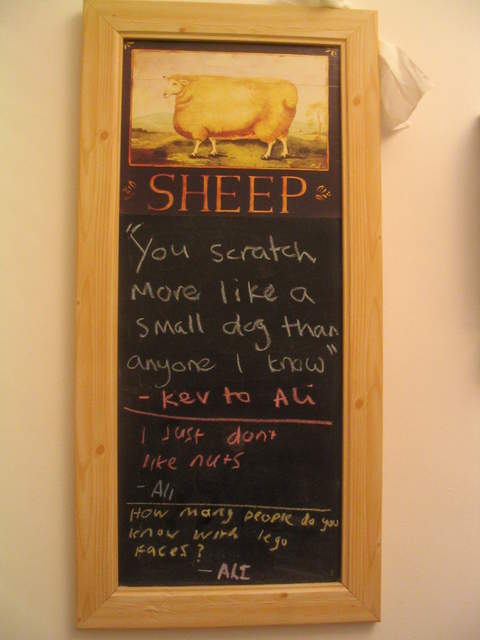 SHEEP
"You scratch
More like a
small dog than
anyone I know"
- Kev to Ali
I Just don't
like nuts
- Ali
How many people do you
know with lego
faces?
- ALI